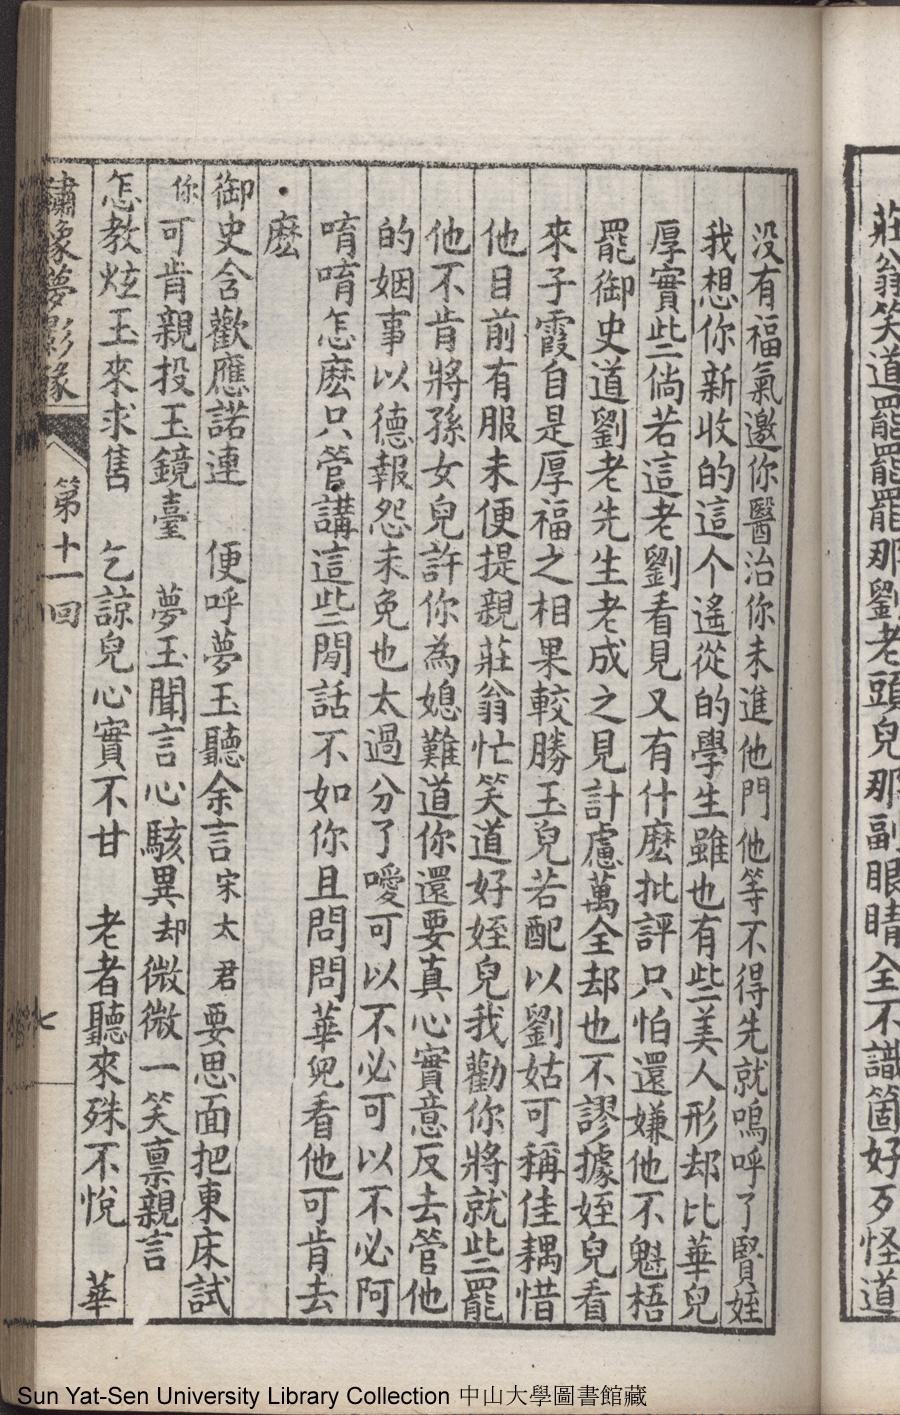 莊翁笑道罷罷罷那劉老頭兒那副眼睛全不識箇好歹怪道
没有福氣邀你醫治你未進他門他等不得先就嗚呼了賢姪
我想你新收的這个遙從的學生雖也有些美人形却比華兒
厚實些倘若這老劉看見又有什麽批評只怕還嫌他不魁梧
罷御史道劉老先生老成之見計慮萬全却也不謬據姪兒看
來子霞自是厚福之相果較勝玉兒若配以劉姑可稱佳耦惜
他目前有服未便提親莊翁忙笑道好姪兒我勸你將就些罷
他不肯將孫女兒許你為媳難道你還要真心實意反去管他
的姻事以德報怨未免也太過分了噯可以不必可以不必阿
唷唷怎麽只管講這些閒話不如你且問問華兒看他可肯去
麽
御史含歡應諾連 便呼夢玉聽余言宋太君要思面把東床試
你可肯親投玉鏡臺 夢玉聞言心駭異却微微一笑禀親言
怎教炫玉來求售 乞諒兒心實不甘 老者聽來殊不悅 華
繡像夢影緣 第十一回 七
Sun Yat-Sen University Library Collection 中山大學圖書館藏